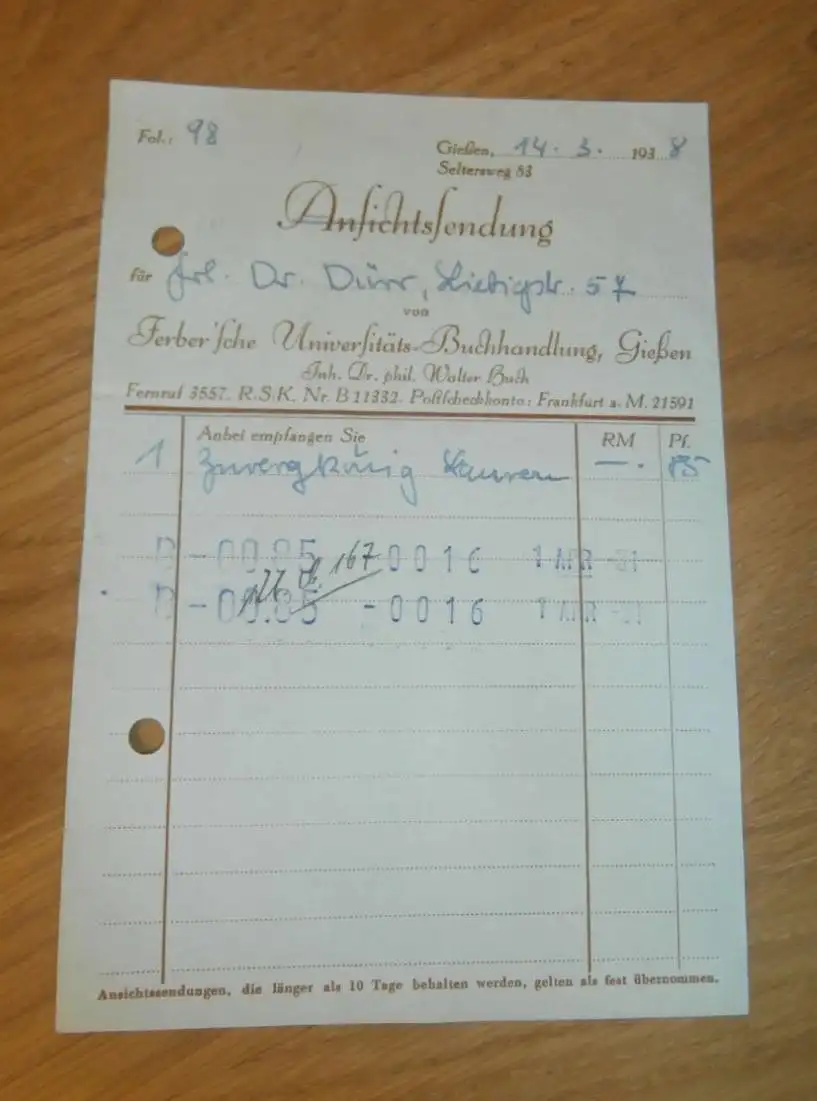 Fol.: 98
Gießen, 14. 3. 1938
Seltersweg 83
Ansichtssendung
für Frl. Dr. Dürr, Liebigstr. 57
von
Ferber'sche Universitäts-Buchhandlung, Gießen
Inh. Dr. phil. Walter Buch
Fernruf 3557. R.S.K. Nr. B 11332. Postscheckkonto: Frankfurt a. M. 21591
Anbei empfangen Sie RM Pf.
1 Zwergkönig Laurin —. 85
-00.85 167 -0016 1 APR -31
-00.85 -0016 1 APR -31
Ansichtssendungen, die länger als 10 Tage behalten werden, gelten als fest übernommen.